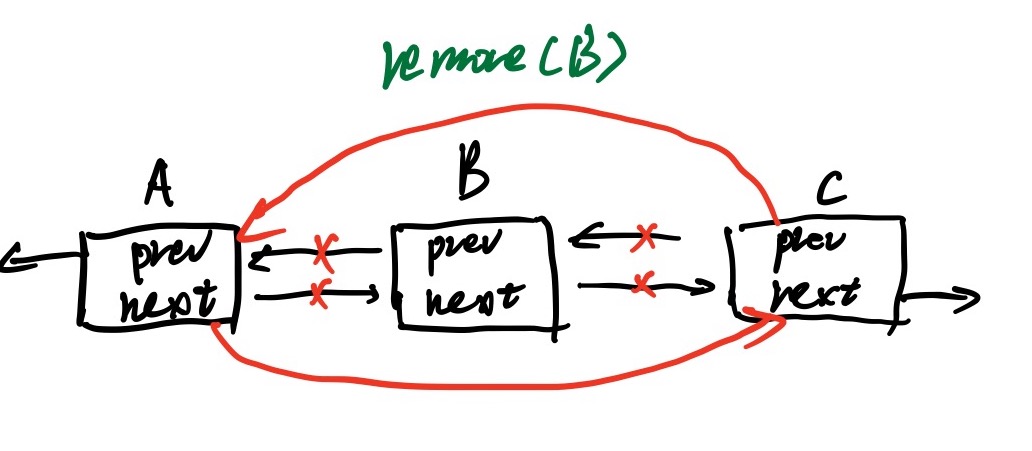 remove(B)
A
B
C
prev
next
prev
next
prev
next